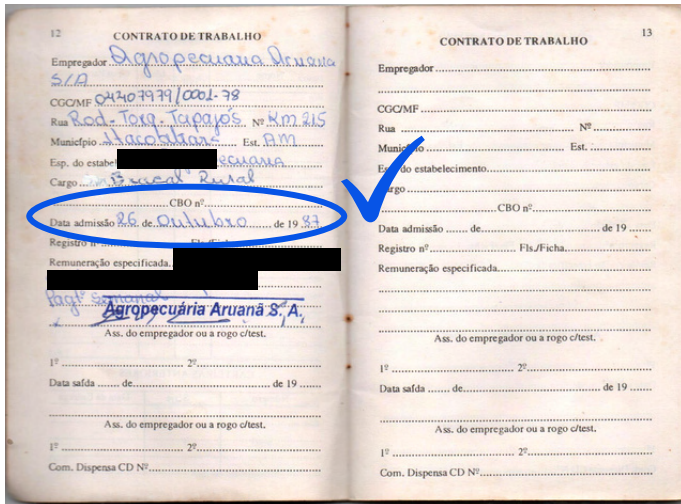 12
CONTRATO DE TRABALHO
Empregador Agropecuaria Aruana
S/A
CGC/MF 04407979/0001-78
Rua Rod. Torq. Tapajós Nº Km 215
Município Itacoatiara Est. AM
Esp. do estabel ecuaria
Cargo Braçal Rural
CBO nº
Data admissão 26 de Outubro de 19 87
Registro nº Fls./Ficha
Remuneração especificada
Pagtº semanal
Agropecuária Aruanã S. A.
Ass. do empregador ou a rogo c/test.
1º 2º
Data saída de de 19
Ass. do empregador ou a rogo c/test.
1º 2º
Com. Dispensa CD Nº
13
CONTRATO DE TRABALHO
Empregador
CGC/MF
Rua Nº
Município Est.
Esp. do estabelecimento
Cargo
CBO nº
Data admissão de de 19
Registro nº Fls./Ficha
Remuneração especificada
Ass. do empregador ou a rogo c/test.
1º 2º
Data saída de de 19
Ass. do empregador ou a rogo c/test.
1º 2º
Com. Dispensa CD Nº